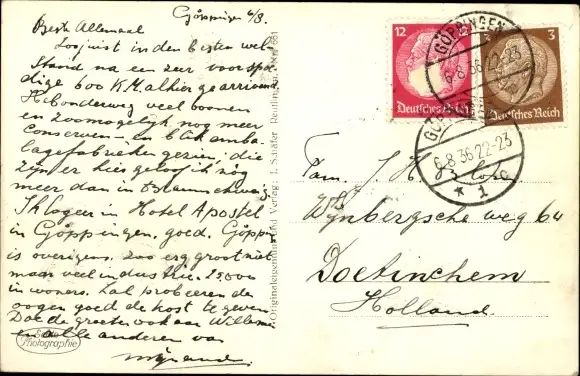 Göppingen 6/8.
Beste Allemaal
Zoo juist in den besten wel-
stand na een zeer voorspoe-
dige 600 K.M. alhier gearriveerd
Heb onderweg veel boomen
en zoo mogelijk nog meer
conserven- en blik emba-
lagefabrieken gezien, die
zijn er hier geloof ik nog
meer dan in Braunschweig.
Ik logeer in Hotel Apostel
in Göppingen, goed. Göpp.
is overigens zoo erg groot niet
maar veel industrie. 25000
inwoners. Zal probeeren de
oogen goed de kost te geven
Doe de groeten ook aan Willem
en alle anderen van
Echte
Photographie
Originaleigentum und Verlag: J. Schäfer Reutlingen
12 12
Deutsches Reich
3
Deutsches Reich
GÖPPINGEN
6-8.36.22-23
6-8.36.22-23
* 1
Fam. J. H.
Wijnbergsche weg 64
Doetinchem
Holland.